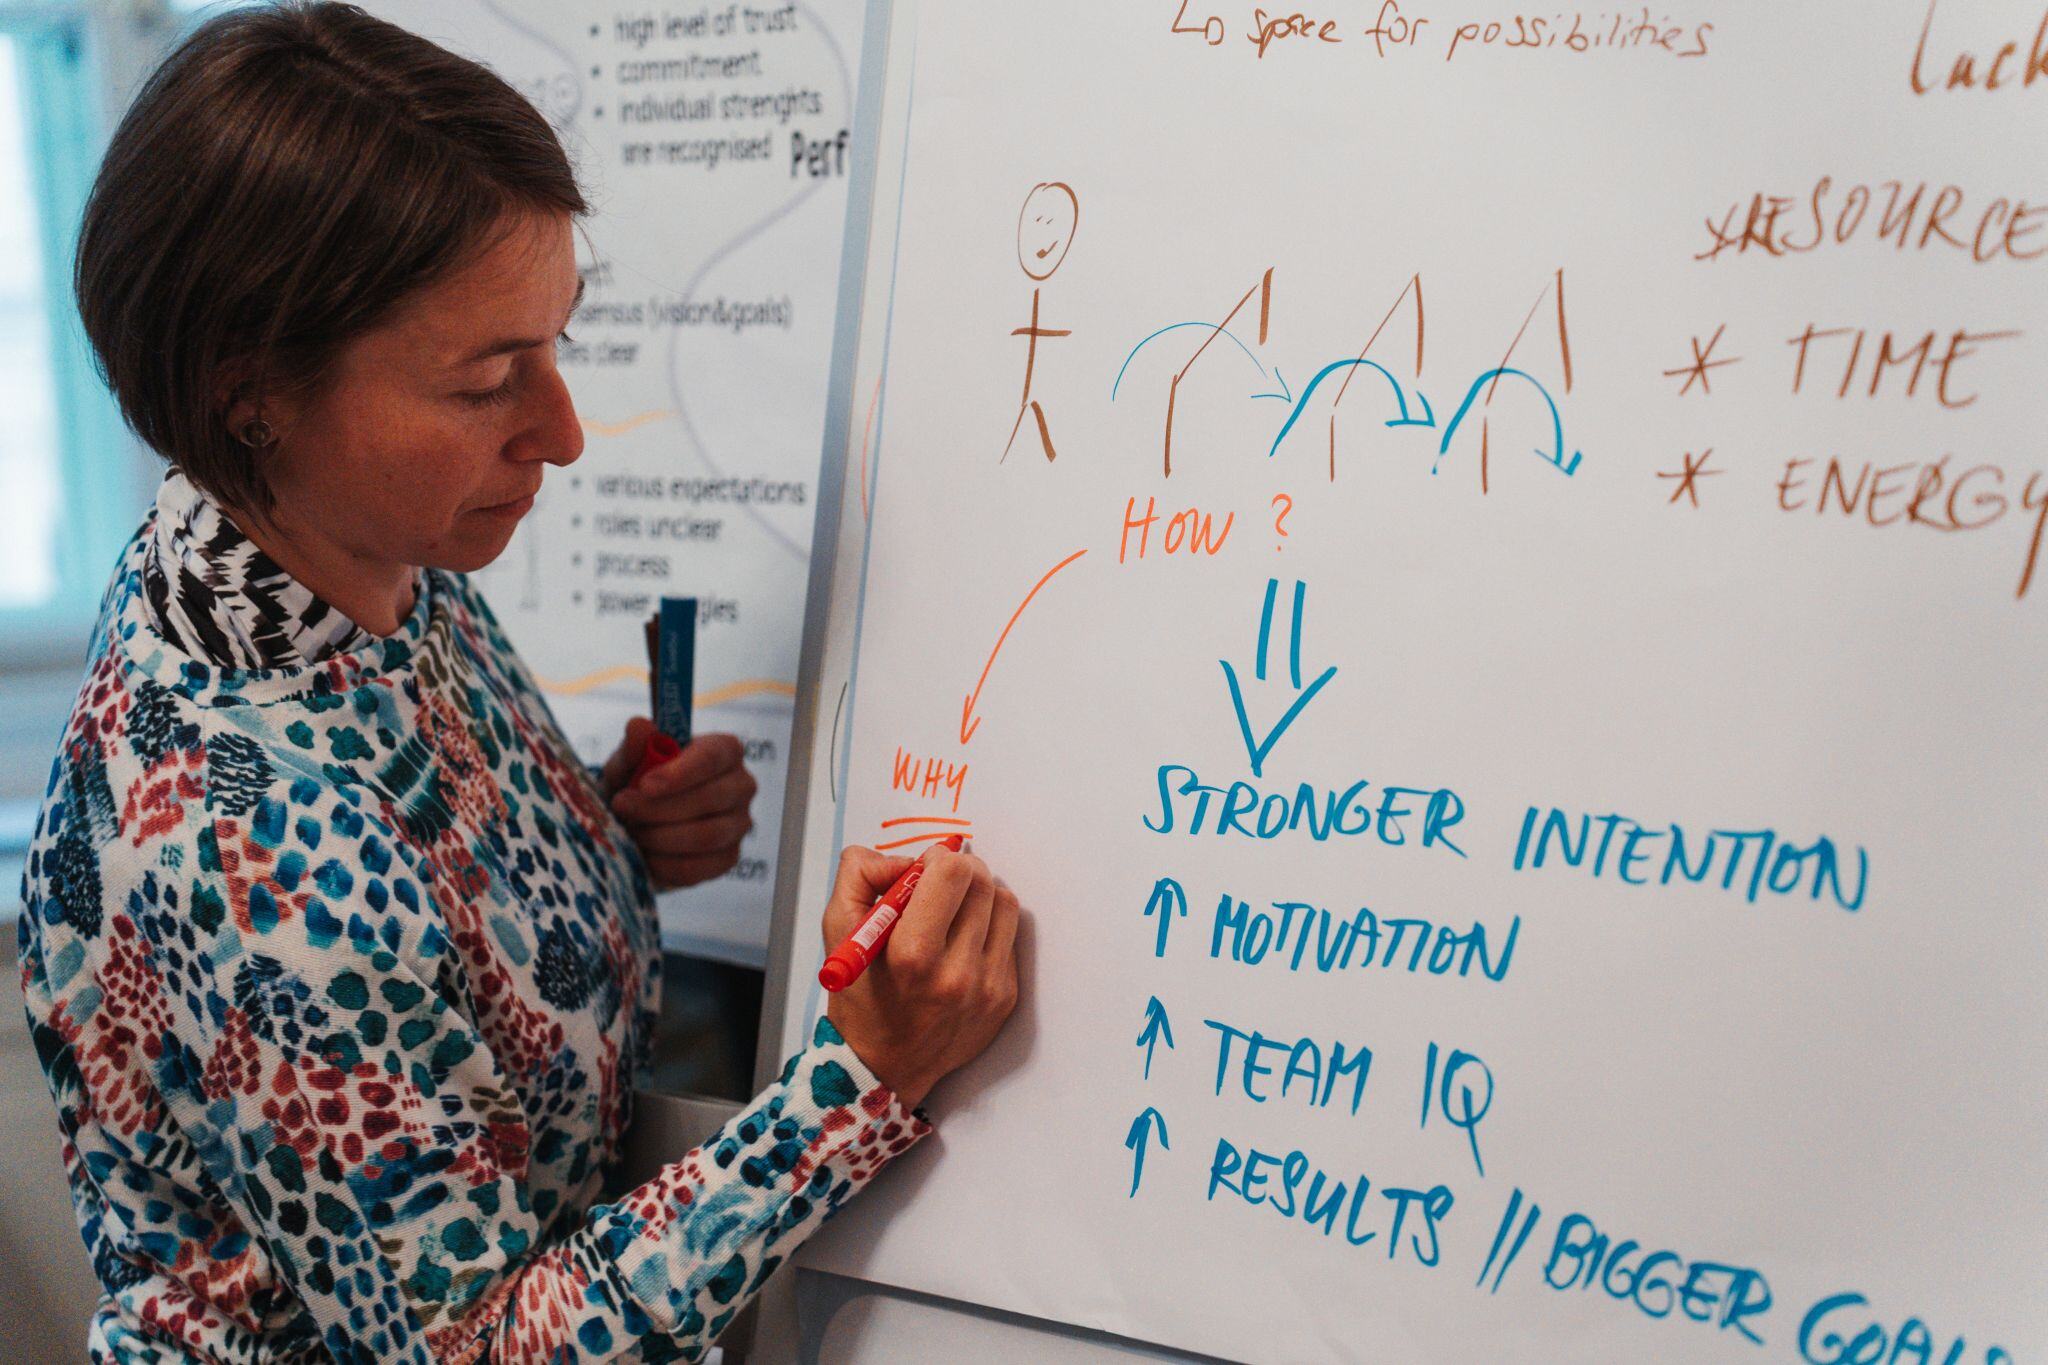 • high level of trust
• commitment
• individual strenghts
are recognised
Perf
(vision&goals)
clear
• various expectations
• roles unclear
• process
• power
↳ space for possibilities
Lack
* RESOURCE
* TIME
* ENERGY
HOW ?
WHY
STRONGER INTENTION
↑ MOTIVATION
↑ TEAM IQ
↑ RESULTS // BIGGER GOALS